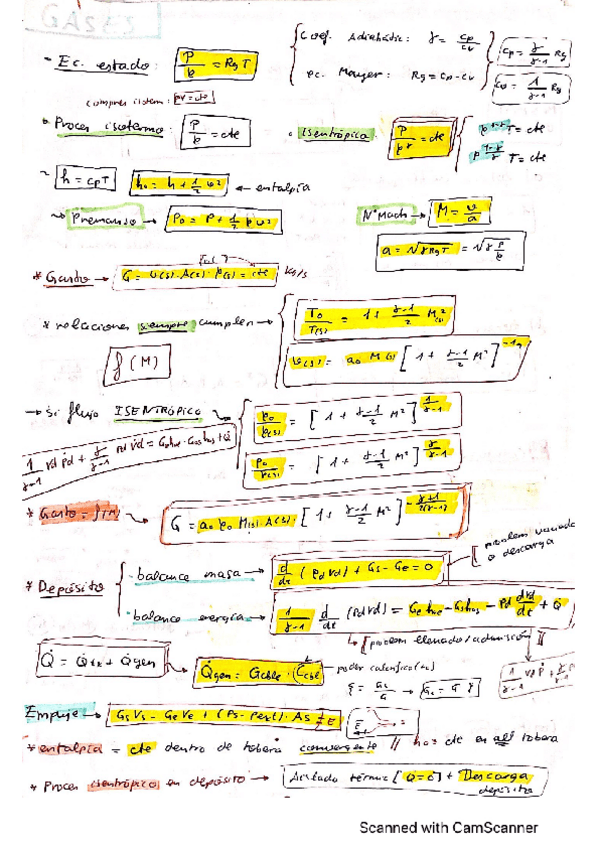 GASES
- Ec. estado: P/ρ = RgT
Coef. Adiabátic: γ = cp/cv
Ec. Mayer: Rg = cp - cv
cp = γ/γ-1 Rg
cv = 1/γ-1 Rg
* Proces isotermo: P/ρ = cte
isentrópica: P/ρ^γ = cte
T = cte
T = cte
h = cpT
h₀ = h + 1/2 v² ← entalpía
P₀ = P + 1/2 ρv²
NºMach → M = v/a
a = √γRgT = √γ P/ρ
* Gasto → G = v(s)·A(s)·ρ(s) = cte kg/s
* relaciones siempre cumplen →
T₀/T(s) = 1 + γ-1/2 M²(s)
v(s) = a₀ M(s) [1 + γ-1/2 M²]^-1/2
f(M)
→ Si flujo ISENTRÓPICO
ρ₀/ρ(s) = [1 + γ-1/2 M²]^1/γ-1
P₀/P(s) = [1 + γ-1/2 M²]^γ/γ-1
* Gasto = f(M)
G = a₀ρ₀M(s)A(s) [1 + γ-1/2 M²]^-γ+1/2(γ-1)
o descarga
* Depósito
balance masa → d/dt (ρdVd) + Gs - Ge = 0
balance energía → 1/γ-1 d/dt (PdVd) = Gehoe - Gshos - Pd dVd/dt + Q̇
problem llenado/admisión
Q̇ = Q̇ext + Q̇gen
Q̇gen = Gcble · Ccbl
poder calorífico
Empuje → GsVs - GeVe + (Ps - Pext)·As = E
* entalpía = cte dentro de tobera convergente // h₀ = cte en all tobera
* Proces isentrópico en depósito → Aislado térmic [Q̇=0] + Descarga
depósito
Scanned with CamScanner